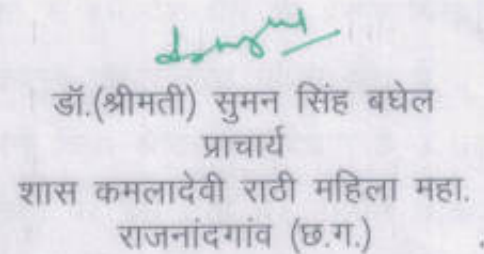 डॉ.(श्रीमती) सुमन सिंह बघेल
प्राचार्य
शास कमलादेवी राठी महिला महा.
राजनांदगांव (छ.ग.)